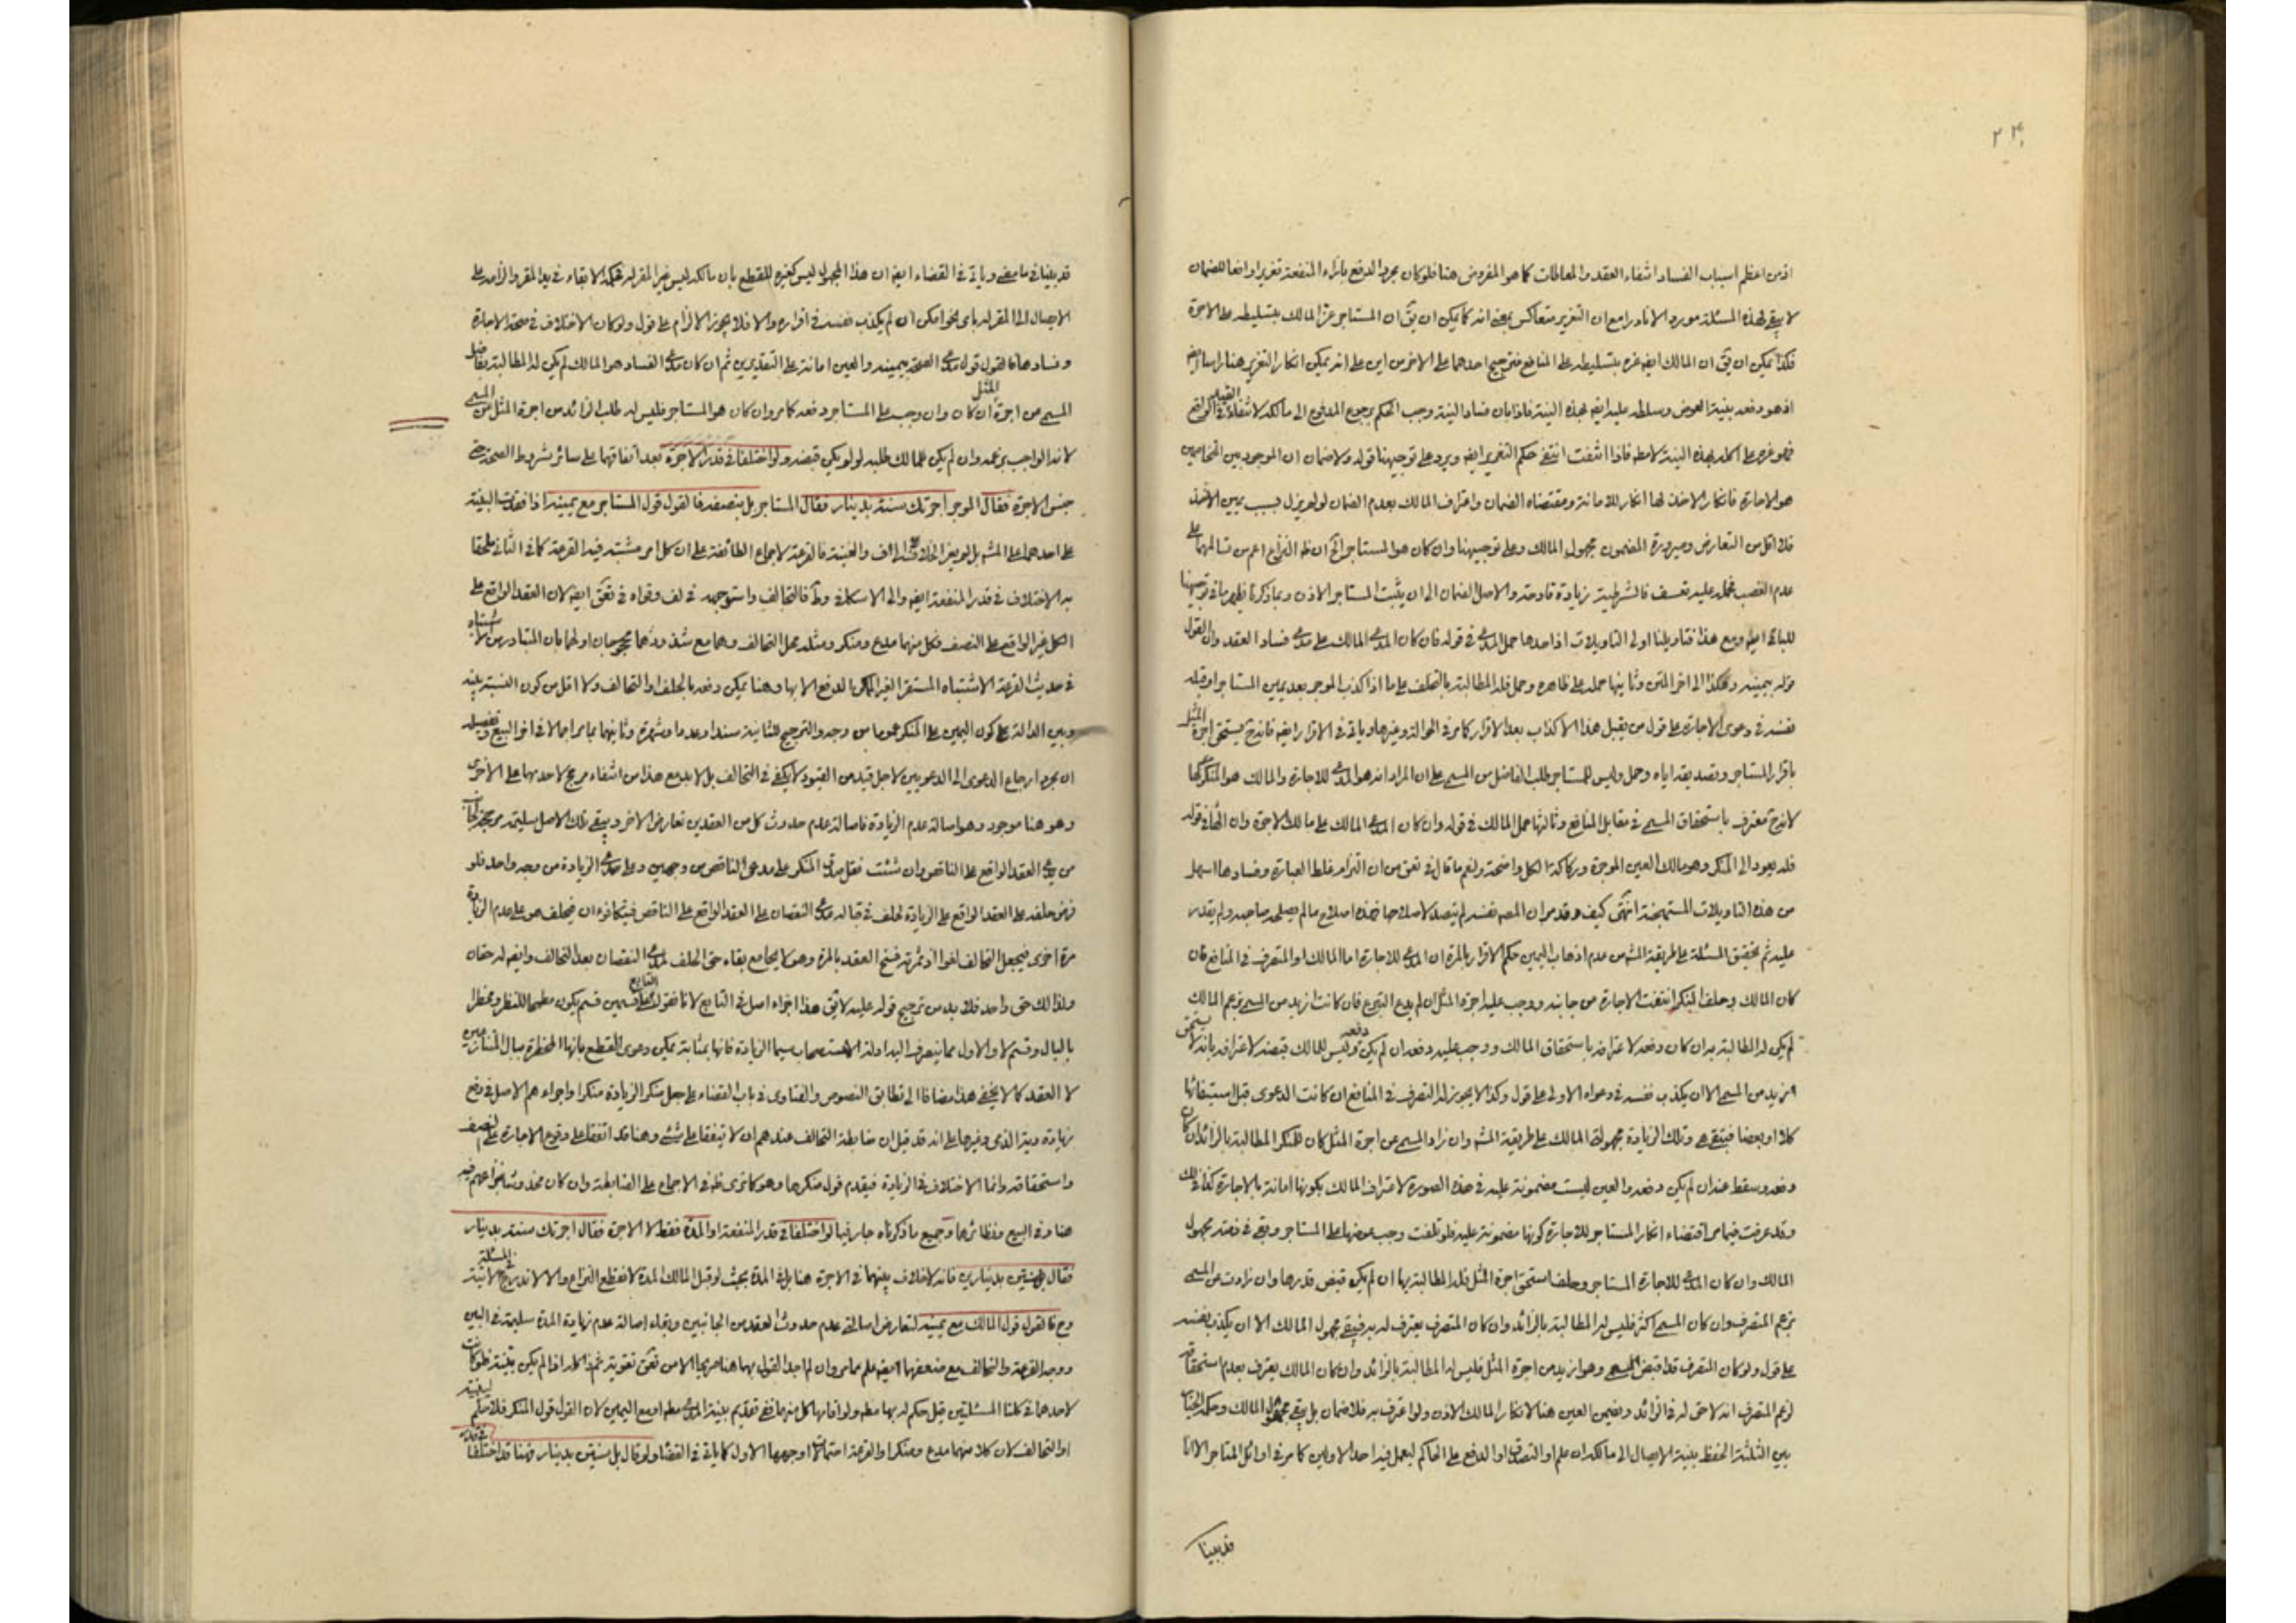 ٢٣٠
اذ من اعظم اسباب الفساد انتفاء العقد والمعاملات كما هو المفروض هنا فلو كان مجرد الدفع بازاء المنفعة تغريرا دافعا للضمان
لا يبقى لهذه المسئلة مورد الا نادرا مع ان التغرير متعاكس بمعنى انه كما يمكن ان يق ان المستاجر غر المالك بتسليطه على الاجرة
فكذا يمكن ان يق ان المالك ايض غره بتسليطه على المنافع فترجيح احدهما على الاخر من اين على انه يمكن انكار التغرير هنا راسا
اذ هو دفعه بنية العوض وسلطه عليه ايض بهذه النية فاذا بان فساد النية وجب الحكم برجوع المدفوع الى مالكه لانتفاء
فهو غره على اكله بهذه النية لا مط فاذا انتفت انتفى حكم التغرير ايض ويرد على توجيهنا قوله ولا ضمان ان الموجود بين المتخاصمين
هو الاجارة فانكار الاخذ لها انكار للامانة ومقتضاه الضمان واعتراف المالك بعدم الضمان لو لم يزل بسبب يمين الاخذ
فلا اقل من التعارض وصيرورة المضمون مجهول المالك وعلى توجيهنا وان كان هو المستاجر الخ ان ظ النزاع اعم من تسالمهما على
عدم الغصب فحمله عليه تعسف فالشرطية زيادة قادحة والاصل الضمان الى ان يثبت المستاجر الاذن وبما ذكرنا يظهر ما في توجيهنا
للباقي ايض ومع هذا فتاويلنا اولى التاويلات اذ احدها حمل المدعي في قوله فان كان المدعي المالك على مدعي فساد العقد وان القول
قوله بيمينه وهكذا الى اخر المتن وثانيها حمله على ظاهره وحمل فله المطالبة بالتخلف على ما اذا كذب الموجر بعد يمين المستاجر او قبله
نفسه في دعوى الاجارة على قول من يقبل هذا الاكذاب بعد الاقرار كما مر في الحوالة وغيرها وياتي في الاقرار ايض فانه ح يستحق اجرة المثل
باقرار المستاجر وتصديقه اياه وحمل وليس للمستاجر طلب الفاضل من المسمى على ان المراد انه هو المدعي للاجارة والمالك هو المنكر لها
لانه ح معترف باستحقاق المسمى في مقابل المنافع وثالثها حمل المالك في قوله وان كان المدعي المالك على مالك الاجرة وان الهاء في قوله
فله يعود الى المنكر وهو مالك العين الموجرة وركاكة الكل واضحة ولنعم ما قال في تعق من ان التزام غلط العبارة وفسادها اسهل
من هذه التاويلات المستهجنة انتهى كيف وقد مر ان المص نفسه لم يتصد لاصلاحها فهذه اصلاح ما لم يصلحه صاحبه ولم يقدر
عليه ثم تحقيق المسئلة على طريقة المش من عدم اذهاب اليمين حكم الاقرار بالمرة ان المدعي للاجارة اما المالك او المتصرف في المنافع فان
كان المالك وحلف المنكر انتفت الاجارة من جانبه ووجب عليه اجرة المثل ان لم يدع التبرع فان كانت ازيد من المسمى بزعم المالك
لم يكن له المطالبة به ان كان دفعه لاعترافه باستحقاق المالك ووجب عليه دفعه ان لم يكن دفعه وليس للمالك قبضه لاعترافه بانه لا يستحق
ازيد من المسمى الا ان يكذب نفسه في دعواه الاولى على قول وكذا لا يجوز له التصرف في المنافع ان كانت الدعوى قبل استيفائها
كلا او بعضا فيبقى هي وتلك الزيادة مجهولة المالك على طريقة المش وان زاد المسمى عن اجرة المثل كان للمنكر المطالبة بالزائد ان كان
دفعه وسقط عنه ان لم يكن دفعه والعين ليست مضمونة عليه في هذه الصورة لاعتراف المالك بكونها امانة بالاجارة كذا قالوا
وقد عرفت فيما مر اقتضاء انكار المستاجر للاجارة كونها مضمونة عليه فلو تلفت وجب عوضها على المستاجر وبقي في ذمته مجهول
المالك وان كان المدعي للاجارة المستاجر وحلف استحق اجرة المثل فله المطالبة بها ان لم يكن قبض قدرها وان زادت عن المسمى
بزعم المتصرف وان كان المسمى اكثر فليس له المطالبة بالزائد وان كان المتصرف يعترف له به فيبقى مجهول المالك الا ان يكذب نفسه
على قول ولو كان المتصرف قد اقبض المسمى وهو ازيد من اجرة المثل فليس له المطالبة بالزائد وان كان المالك يعترف بعدم استحقاقه
لزعم المتصرف انه لا حق له في الزائد ويضمن العين هنا لانكار المالك الاذن ولو اعترف به فلا ضمان بل يبقى مجهول المالك وحكم
بين الثلثة الحفظ بنية الايصال الى مالكه ان علم او التصدق او الدفع على الحاكم ليعمل فيه احد الاولين كما مر في اوائل المتاجر الا انا
قد بينا
قد بينا في ما مضى وياتي في القضاء ايض ان هذا المجهول ليس كغيره للقطع بان مالكه ليس غير المقر له فحكمه الابقاء في يد المقر والزامه على
الايصال الى المقر له باي نحو امكن ان لم يكذب نفسه في اقراره والا فلا يجوز الالزام على قول ولو كان الاختلاف في صحة الاجارة
وفسادها فالقول قول مدعي الصحة بيمينه والعين امانة على التقديرين ثم ان كان مدعي الفساد هو المالك لم يكن له المطالبة بفاضل
المسمى من اجرة المثل ان كان وان وجب على المستاجر دفعه كما مر وان كان هو المستاجر فليس له طلب الزائد من اجرة المثل من المسمى
لانه الواجب بزعمه وان لم يكن للمالك طلبه لو لم يكن قبضه ولو اختلفا في قدر الاجرة بعد اتفاقهما على سائر شروط الصحة حتى
جنس الاجرة فقال الموجر اجرتك سنة بدينار فقال المستاجر بل بنصفه فالقول قول المستاجر مع يمينه اذا فقدت البينة
على احدهما على المش بل بغير الخلاف والغنية فالقرعة لاجماع الطائفة على ان كل امر مشتبه فيه القرعة كما في الثاني ملحقا
به الاختلاف في قدر المنفعة ايض والى الاسكافي وط فالتحالف واستوجهه في لف وقواه في تعق ايض لان العقد الواقع على
الكل غير الواقع على النصف فكل منهما مدع ومنكر ومثله محل التحالف وهما مع شذوذهما محجوجان اولهما بان المتبادر من الاشتباه
في حديث القرعة الاشتباه المستقر الغير الممكن الدفع الا بها وهنا يمكن دفعه بالحلف او التحالف ولا اقل من كون النسبة بينه
وبين الدالة على كون اليمين على المنكر عموما من وجه والترجيح للثانية سندا وعددا وشهرة وثانيهما بما مر اجمالا في اخر البيع وتفصيله
ان مجرد ارجاع الدعوى الى الدعويين لاجل قيد من القيود لا يكفي في التحالف بل لا بد مع هذا من انتفاء مرجح لاحديهما على الاخرى
وهو هنا موجود وهو اصالة عدم الزيادة فاصالة عدم حدوث كل من العقدين تعارض الاخر ويبقى ذلك الاصل سليما
من العقد الواقع على الناقص وان شئت فقل صدق المنكر على مدعي الناقص من وجهين وعلى مدعي الزيادة من وجه واحد فلو
فرض حلفه على العقد الواقع على الزيادة لحلف في قباله مدعي النقصان على العقد الواقع على الناقص فيتكافئان فيحلف هو على عدم الزيادة
مرة اخرى فيجعل التحالف لغوا اذ ثمرته فسخ العقد بالمرة وهو لا يجامع بقاء حق الحلف لمدعي النقصان بعد التحالف وايض له حقان
ولذلك حق واحد فلا بد من ترجيح قوله عليه لا يق هذا اجراء اصل في التابع لانا نقول التابع على قسمين قسم يكون مطمحا للنظر ومخطرا
بالبال وقسم لا والاول مما ينصرف اليه ادلة الاستصحاب سيما الزيادة فانها بمثابة يمكن دعوى القطع بانها المخطرة ببال المتنازعين
لا العقد كما لا يخفى هذا مضافا الى تطابق النصوص والفتاوى في باب القضاء على جعل منكر الزيادة منكرا واجراءهم الاصل في دفع
زيادة دية الذمي وغيرها على انه قد قيل ان ضابطة التحالف عندهم ان لا يتفقا على شيء وهنا قد اتفقا على وقوع الاجارة على النصف
واستحقاقه وانما الاختلاف في الزيادة فيقدم قول منكرها وهو كما ترى ظ في الاجماع على الضابطة وان كان
هنا وفي البيع ونظائرها وجميع ما ذكرناه جار فيما لو اختلفا في قدر المنفعة او المدة فقط لا الاجرة فقال اجرتك سنة بدينار
فقال بل سنتين بدينارين فانه لا خلاف بينهما في الاجرة هنا بل في المدة بحيث لو قبل المالك المدة لانقطع النزاع
وح فالقول قول المالك مع يمينه لتعارض اصالتي عدم حدوث العقد من الجانبين وبقاء اصالة عدم زيادة المدة سليمة في البين
ووجه القرعة والتحالف مع ضعفهما ايض علم مما مر وان لم اجد القول بها هنا صريحا الا من تعق تقوية ثم هذا كله اذا لم يكن بينة فلو كانت
لاحدهما في كلتا المسئلتين قبل حكم له بها مط ولو اقامها كل منهما ففي تقديم بينة المدعي مط او مع اليمين لان القول قول المنكر فلا حكم لبينته
او التحالف لان كلا منهما مدع ومنكر او القرعة احتمالات اوجهها الاول كما ياتي في القضاء ولو قال بل سنتين بدينار فهنا قد اختلفا